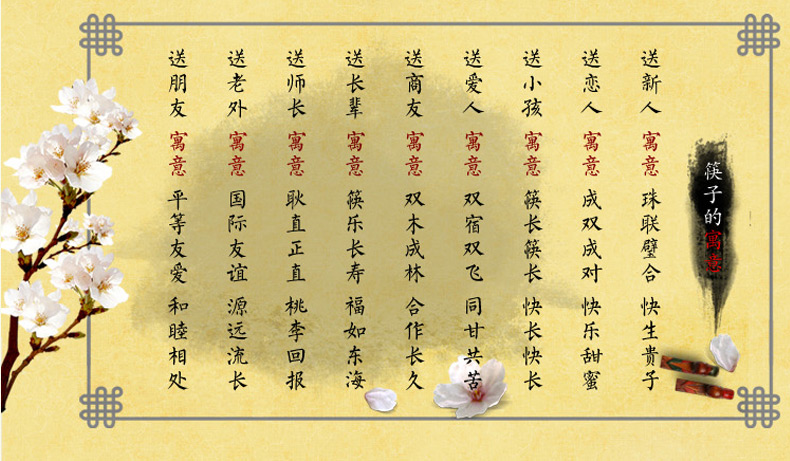 筷子的寓意
送新人 寓意 珠联璧合 快生贵子
送恋人 寓意 成双成对 快乐甜蜜
送小孩 寓意 筷长筷长 快长快长
送爱人 寓意 双宿双飞 同甘共苦
送商友 寓意 双木成林 合作长久
送长辈 寓意 筷乐长寿 福如东海
送师长 寓意 耿直正直 桃李回报
送老外 寓意 国际友谊 源远流长
送朋友 寓意 平等友爱 和睦相处